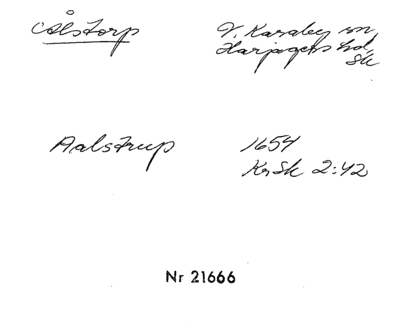 Ålstorp
V. Karaby sn,
Harjagers hd,
Sk
Aalstrup
1654
KrSk 2:42
Nr 21666